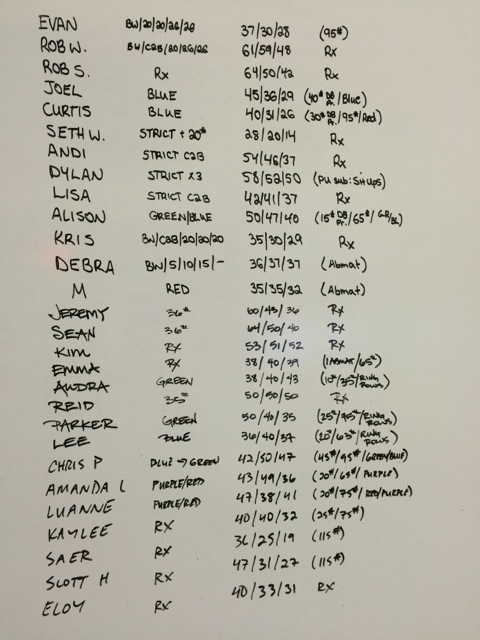 EVAN BW/20/20/26/28 37/30/28 (95#)
ROB W. BW/C2B/20/26/26 61/59/48 Rx
ROB S. Rx 64/50/42 Rx
JOEL BLUE 45/36/29 (40# DB Pr./Blue)
CURTIS BLUE 40/31/26 (30# DB Pr./95#/Red)
SETH W. STRICT + 20# 28/20/14 Rx
ANDI STRICT C2B 54/46/37 Rx
DYLAN STRICT x3 58/52/50 (PU sub: Sit ups)
LISA STRICT C2B 42/41/37 Rx
ALISON GREEN/BLUE 50/47/40 (15# DB Pr./65#/GR/BL)
KRIS BW/C2B/20/20/20 35/30/29 Rx
DEBRA BW/5/10/15/- 36/37/37 (Abmat)
M RED 35/35/32 (Abmat)
JEREMY 36# 60/45/36 Rx
SEAN 36# 64/50/40 Rx
KIM RX 53/51/52 RX
EMMA RX 38/40/39 (1 ABMAT/65#)
AUDRA GREEN 38/40/43 (10#/35#/RING ROWS)
REID 35# 50/50/50 Rx
PARKER GREEN 50/40/35 (25#/75#/RING ROWS)
LEE BLUE 36/40/37 (20#/63#/RING ROWS)
CHRIS P BLUE → GREEN 42/50/47 (45#/95#/GREEN/BLUE)
AMANDA L PURPLE/RED 43/49/36 (20#/65#/PURPLE)
LUANNE PURPLE/RED 47/38/41 (20#/75#/RED/PURPLE)
KAYLEE RX 40/40/32 (25#/75#)
SAER RX 36/25/19 (115#)
SCOTT H RX 47/31/27 (115#)
ELOY RX 40/33/31 RX